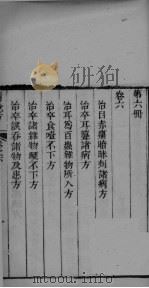 第六冊
卷六
治目赤痛暗昧刺諸病方
治卒耳聾諸病方
治耳為百蟲雜物所入方
治卒食噎不下方
治卒諸雜物鯁不下方
治卒誤吞諸物及患方